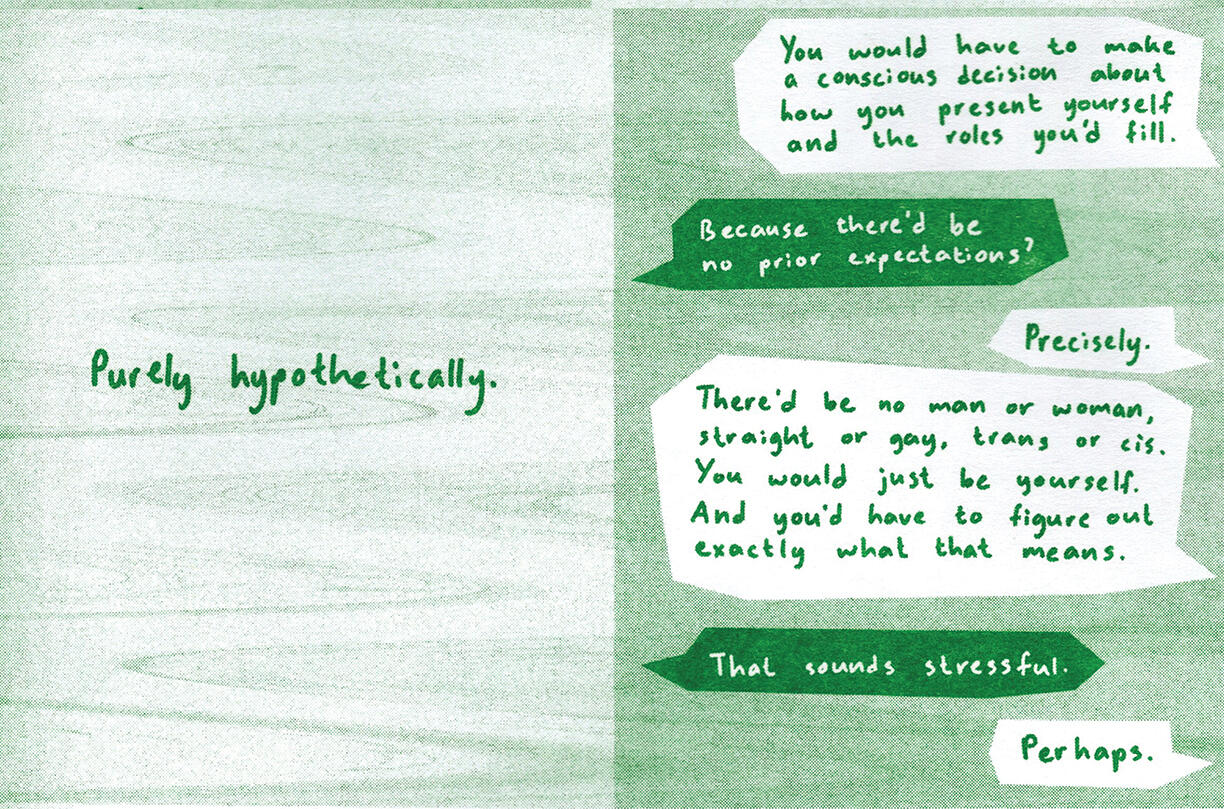 Purely hypothetically.
You would have to make
a conscious decision about
how you present yourself
and the roles you'd fill.
Because there'd be
no prior expectations?
Precisely.
There'd be no man or woman,
straight or gay, trans or cis.
You would just be yourself.
And you'd have to figure out
exactly what that means.
That sounds stressful.
Perhaps.